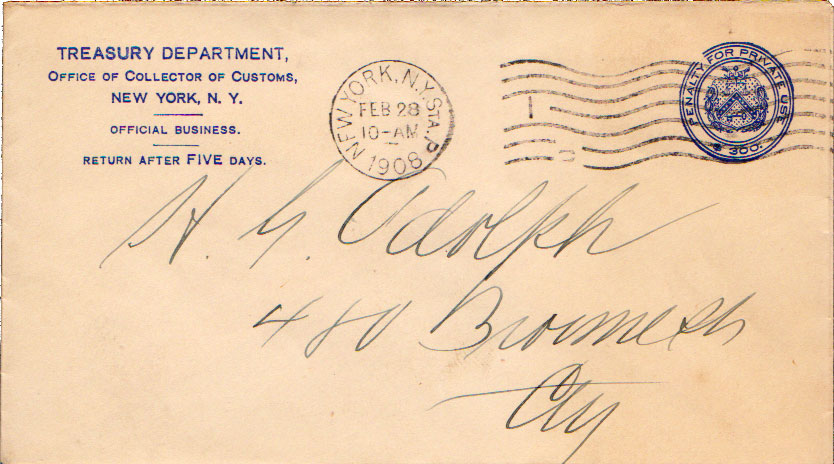 TREASURY DEPARTMENT,
OFFICE OF COLLECTOR OF CUSTOMS,
NEW YORK, N. Y.
OFFICIAL BUSINESS.
RETURN AFTER FIVE DAYS.
NEW YORK, N.Y. STA. P
FEB 28
10-AM
1908
PENALTY FOR PRIVATE USE
$ 300.
H. G. Adolph
480
City